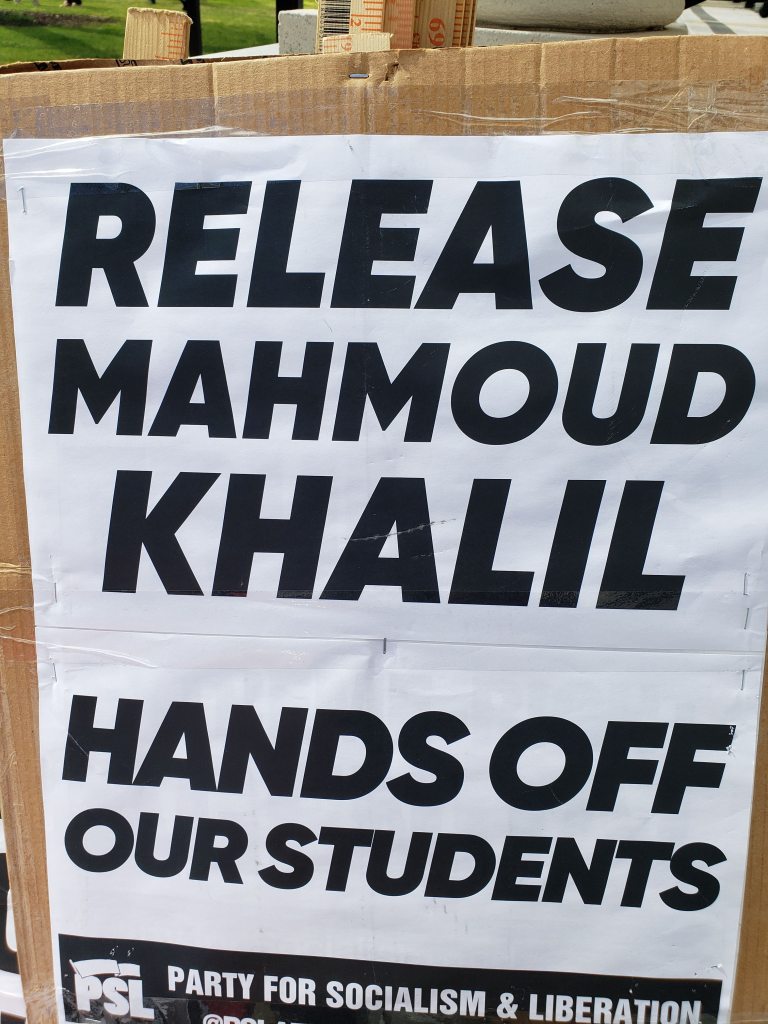 RELEASE
MAHMOUD
KHALIL
HANDS OFF
OUR STUDENTS
PSL PARTY FOR SOCIALISM & LIBERATION